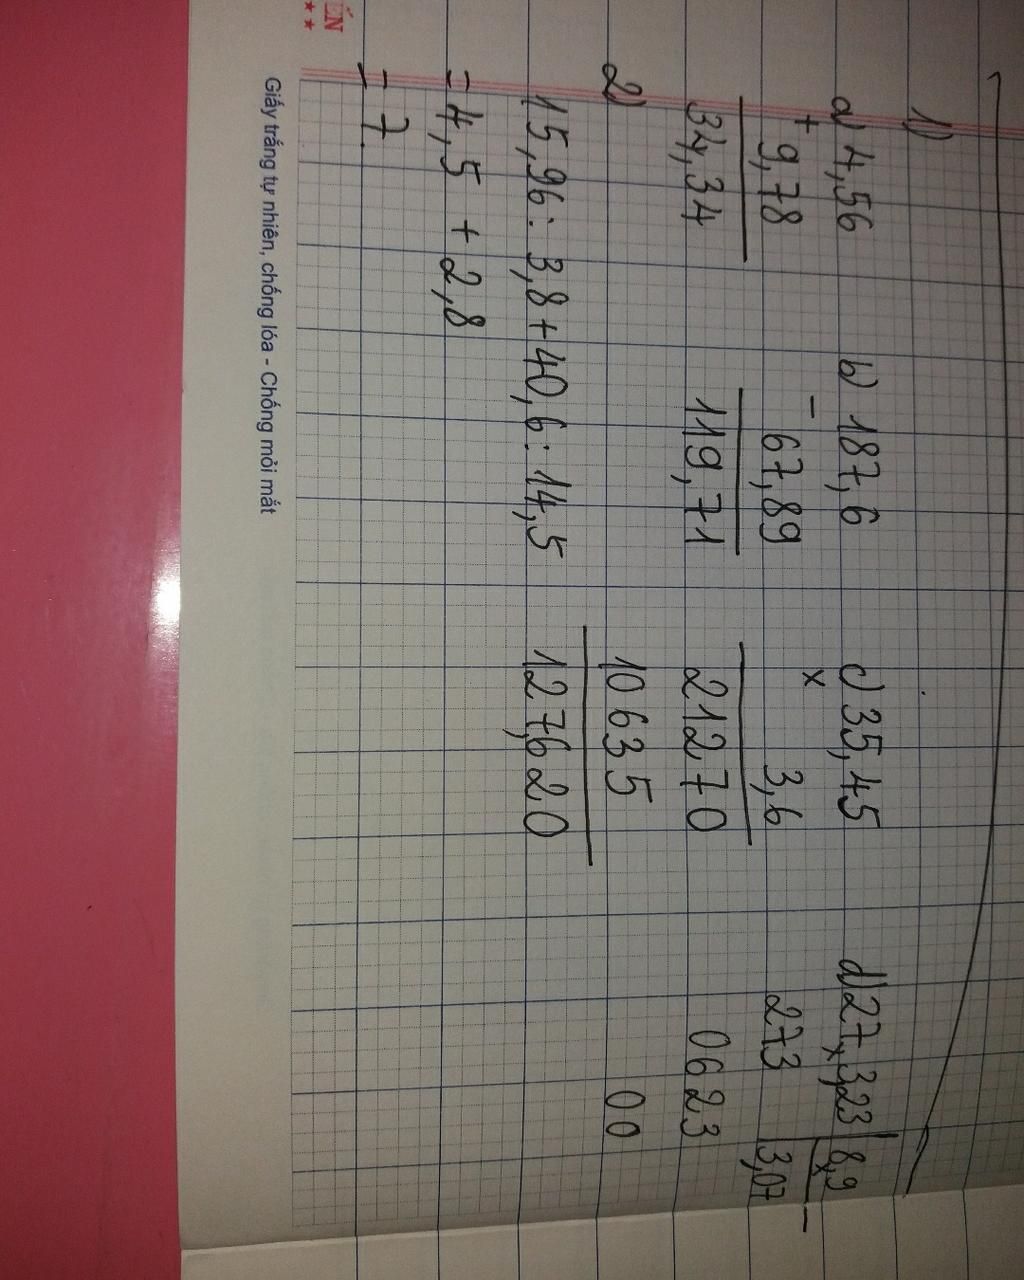 1)
a) 4,56 b) 187,6 c) 35,45 d) 27,323 8,9
+ 9,78 - 67,89 x 3,6 273 3,07
34,34 119,71 21270 0623
2) 10635 00
15,96 : 3,8 + 40,6 : 14,5 127,620
= 4,5 + 2,8
= 7.
ẾN
Giấy trắng tự nhiên, chống lóa - Chống mỏi mắt